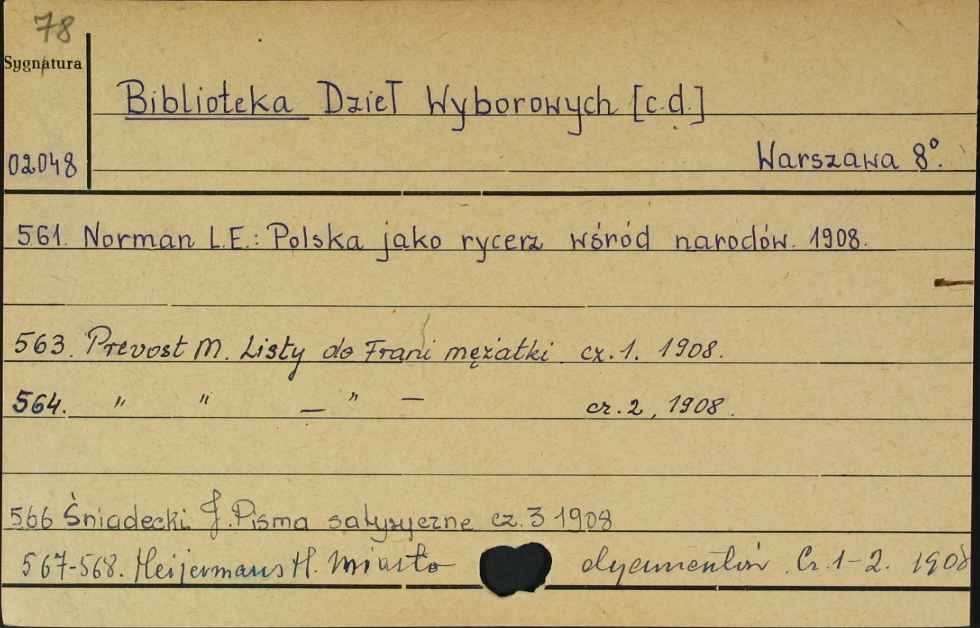 78
Sygnatura
Biblioteka Dzieł Wyborowych [c.d.]
02048
Warszawa 8°.
561. Norman L.E.: Polska jako rycerz wśród narodów. 1908.
563. Prevost M. Listy do Frani mężatki cz. 1. 1908.
564. " " — " — cz. 2, 1908.
566 Śniadecki J. Pisma satyryczne cz. 3 1908
567-568. Heijermans H. Miasto dyamentów. Cz. 1-2. 1908